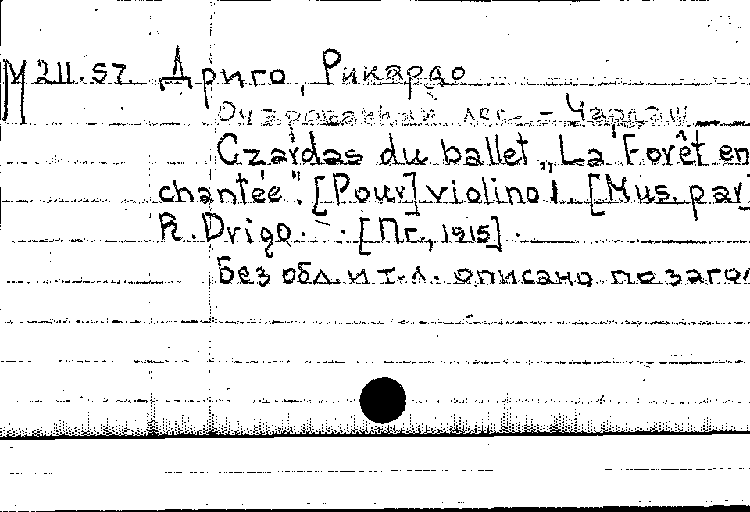 М 211.57. Дриго, Рикардо
Очарованный лес. - Чардаш
Czárdas du ballet „La Forêt en
chantée". [Pour] violino I. [Mus. par]
R. Drigo. - . [Пг., 1915].
Без обл. и т.л. описано по загол